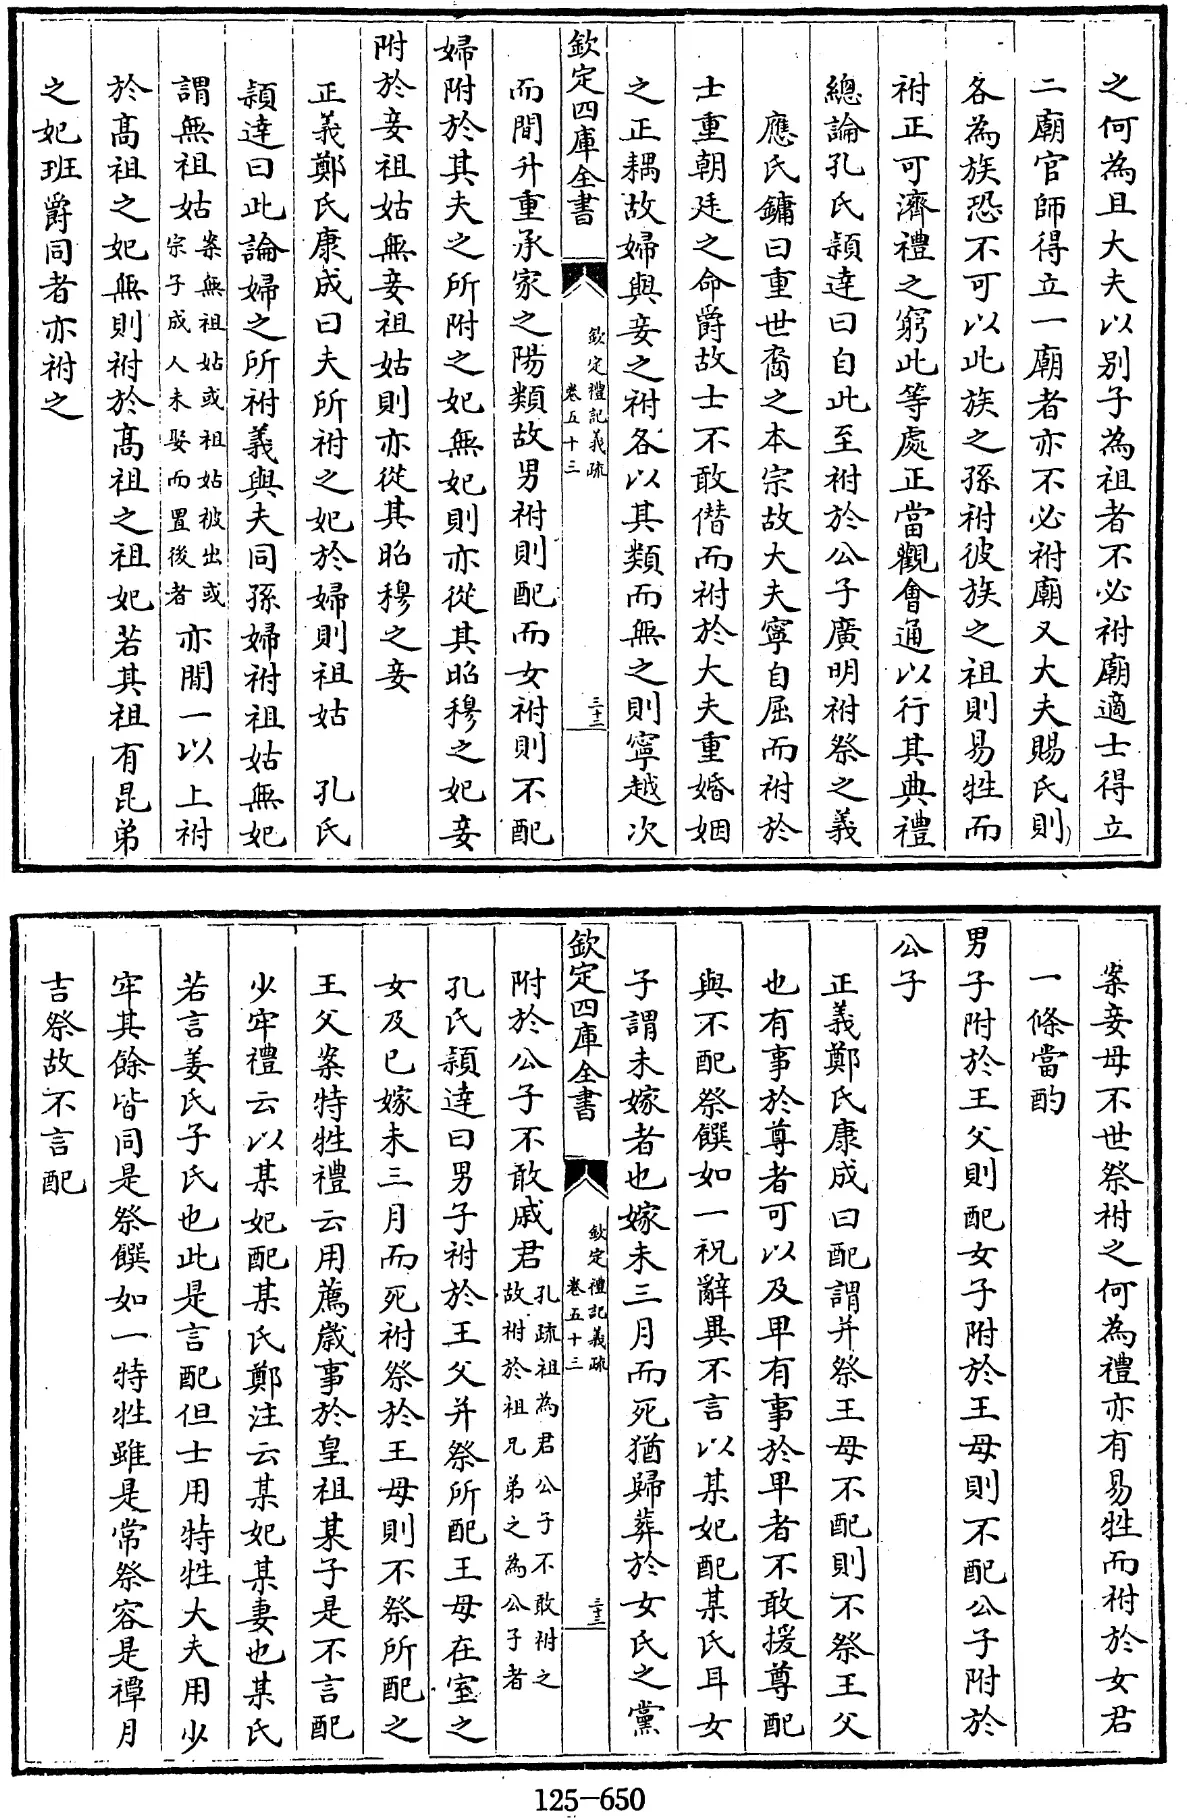 之何為且大夫以別子為祖者不必祔廟適士得立
二廟官師得立一廟者亦不必祔廟又大夫賜氏則
各為族恐不可以此族之孫祔彼族之祖則易牲而
祔正可濟禮之窮此等處正當觀會通以行其典禮
總論孔氏穎達曰自此至祔於公子廣明祔祭之義
應氏鏞曰重世裔之本宗故大夫寧自屈而祔於
士重朝廷之命爵故士不敢僣而祔於大夫重婚姻
之正耦故婦與妾之祔各以其類而無之則寧越次
欽定四庫全書
欽定禮記義疏
卷五十三
三十二
而間升重承家之陽類故男祔則配而女祔則不配
婦附於其夫之所附之妃無妃則亦從其昭穆之妃妾
附於妾祖姑無妾祖姑則亦從其昭穆之妾
正義鄭氏康成曰夫所祔之妃於婦則祖姑　孔氏
穎達曰此論婦之所祔義與夫同孫婦祔祖姑無妃
謂無祖姑案無祖姑或祖姑被出或宗子成人未娶而置後者亦間一以上祔
於髙祖之妃無則祔於髙祖之祖妃若其祖有昆弟
之妃班爵同者亦祔之
案妾母不世祭祔之何為禮亦有易牲而祔於女君
一條當酌
男子附於王父則配女子附於王母則不配公子附於
公子
正義鄭氏康成曰配謂并祭王母不配則不祭王父
也有事於尊者可以及卑有事於卑者不敢援尊配
與不配祭饌如一祝辭異不言以某妃配某氏耳女
子謂未嫁者也嫁未三月而死猶歸葬於女氏之黨
欽定四庫全書
欽定禮記義疏
卷五十三
三十三
附於公子不敢戚君孔疏祖為君公子不敢祔之故祔於祖兄弟之為公子者
孔氏穎達曰男子祔於王父并祭所配王母在室之
女及已嫁未三月而死祔祭於王母則不祭所配之
王父案特牲禮云用薦歲事於皇祖某子是不言配
少牢禮云以某妃配某氏鄭注云某妃某妻也某氏
若言姜氏子氏也此是言配但士用特牲大夫用少
牢其餘皆同是祭饌如一特牲雖是常祭容是禫月
吉祭故不言配
125-650